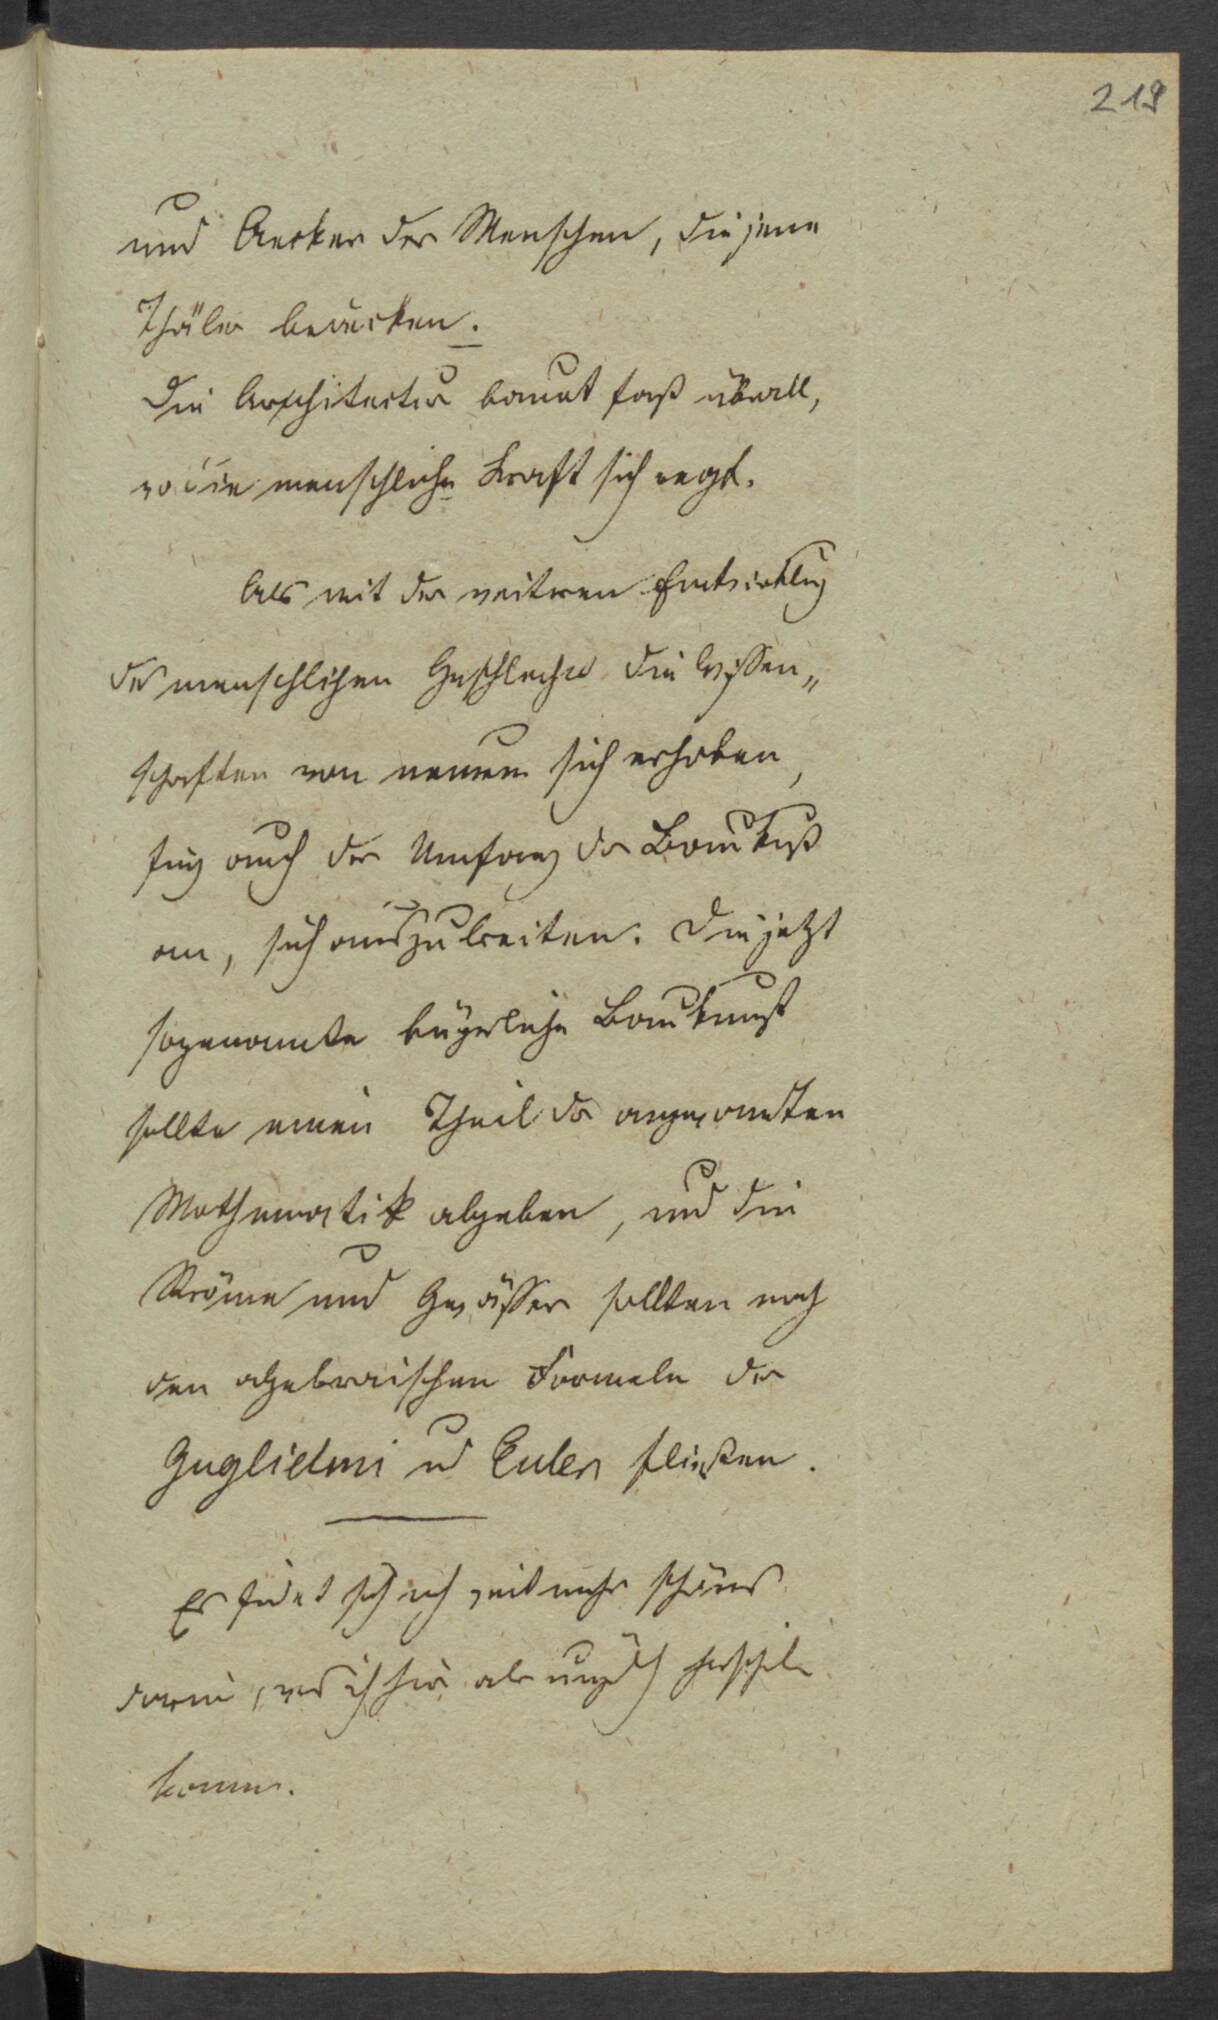 219
und Aecker der Menschen, die jene
Thäler bedecken.
Die Architectur bauet fast überall,
wo die menschliche Kraft sich regt.
Als mit der weitern Entwicklug
des menschlichen Geschlechts die Wissen„
schaften von neuem sich erhoben,
fing auch der Umfang der Baukust
an, sich auszubreiten. Die jetzt
sogenannte bügerliche Baukunst
sollte einen Theil der angewandten
Mathematik abgeben, und die
Ströme und Gewässer sollten nach
den algebraischen Formeln der
Guglielmi ud Euler fließen.
Es findet sich noch weit mehr schönes
darin, was ich hier aber
kann.